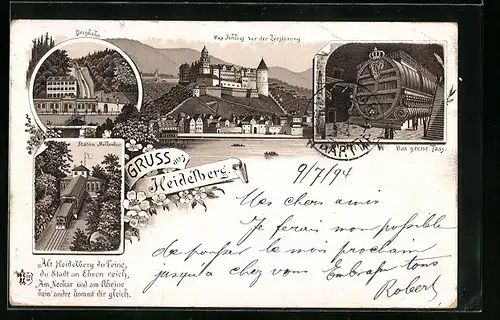 Bergbahn
Das Schloss vor der Zerstörung
Station Molkenkur
Das grosse Fass.
GRUSS aus
Heidelberg.
9/7/94
Mes chers amis
Je ferais mon possible
de pousser le mois prochain
jusqu'à chez vous Embrasse tous
Robert
Alt Heidelberg du Feine,
du Stadt an Ehren reich,
Am Neckar und am Rheine
kein' andre kommt dir gleich.